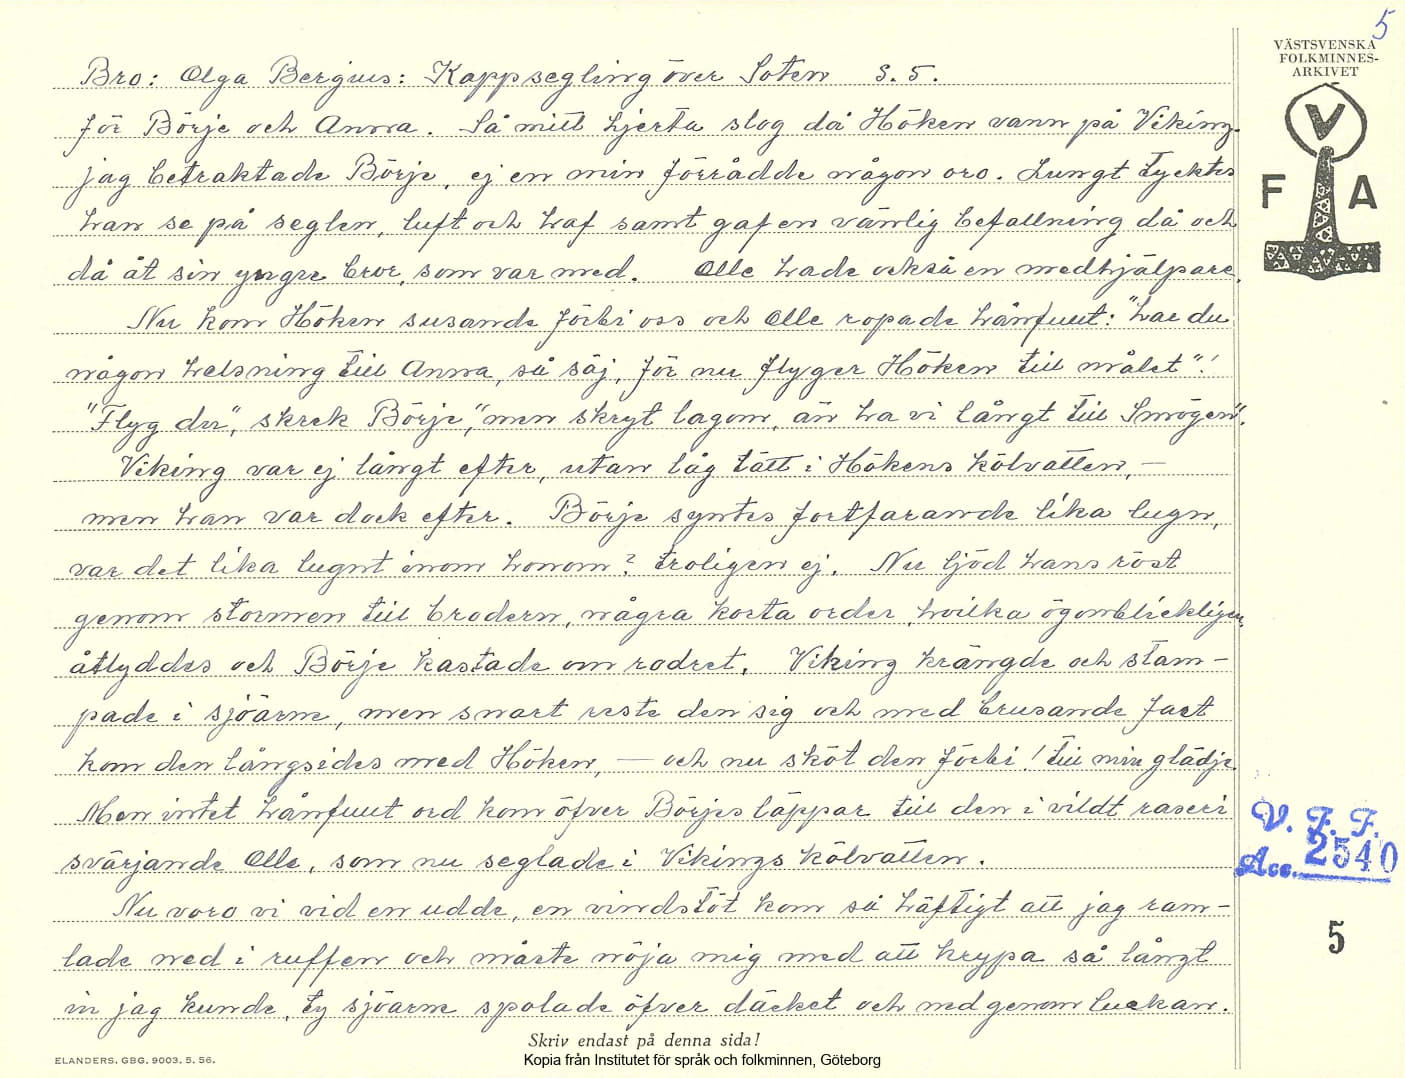 5
VÄSTSVENSKA
FOLKMINNES-
ARKIVET
V
F A
Bro: Olga Bergius: Kappsegling över Soten S. 5.
för Börje och Anna. Så mitt hjerta slog då Höken vann på Viking.
jag betraktade Börje, ej en min förrådde någon oro. Lungt tycktes
han se på seglen, luft och haf samt gaf en vänlig befallning då och
då åt sin yngre bror, som var med. Olle hade också en medhjälpare.
Nu kom Höken susande förbi oss och Olle ropade hånfuut: "har du
någon helsning till Anna, så säj, för nu flyger Höken till målet"!
"Flyg du", skrek Börje, "men skryt lagom, än ha vi långt till Smögen".
Viking var ej långt efter, utan låg tätt i Hökens kölvatten, —
men han var dock efter. Börje syntes fortfarande lika lugn,
var det lika lugnt inom honom? troligen ej. Nu ljöd hans röst
genom stormen till brodern, några korta order, hvilka ögonblickligen
åtlyddes och Börje kastade om rodret. Viking krängde och stam-
pade i sjöarne, men snart reste den sig och med brusande fart
kom den långsides med Höken, — och nu sköt den förbi! till min glädje.
Men intet hånfuut ord kom öfver Börjes läppar till den i vildt raseri
svärjande Olle, som nu seglade i Vikings kölvatten.
Nu voro vi vid en udde, en vindstöt kom så häftigt att jag ram-
lade ned i ruffen och måste nöja mig med att krypa så långt
in jag kunde, ty sjöarne spolade öfver däcket och ned genom luckan.
V. F. F.
Acc. 2540
5
Skriv endast på denna sida!
ELANDERS. GBG. 9003. 5. 56.
Kopia från Institutet för språk och folkminnen, Göteborg